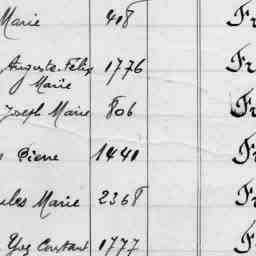 Marie 418 Fr
Auguste-Félix 1776 Fr
Marie
Joseph Marie 806 Fr
Pierre 1441 Fr
Jules Marie 2368 Fr
Yves Constant 1777 Fr